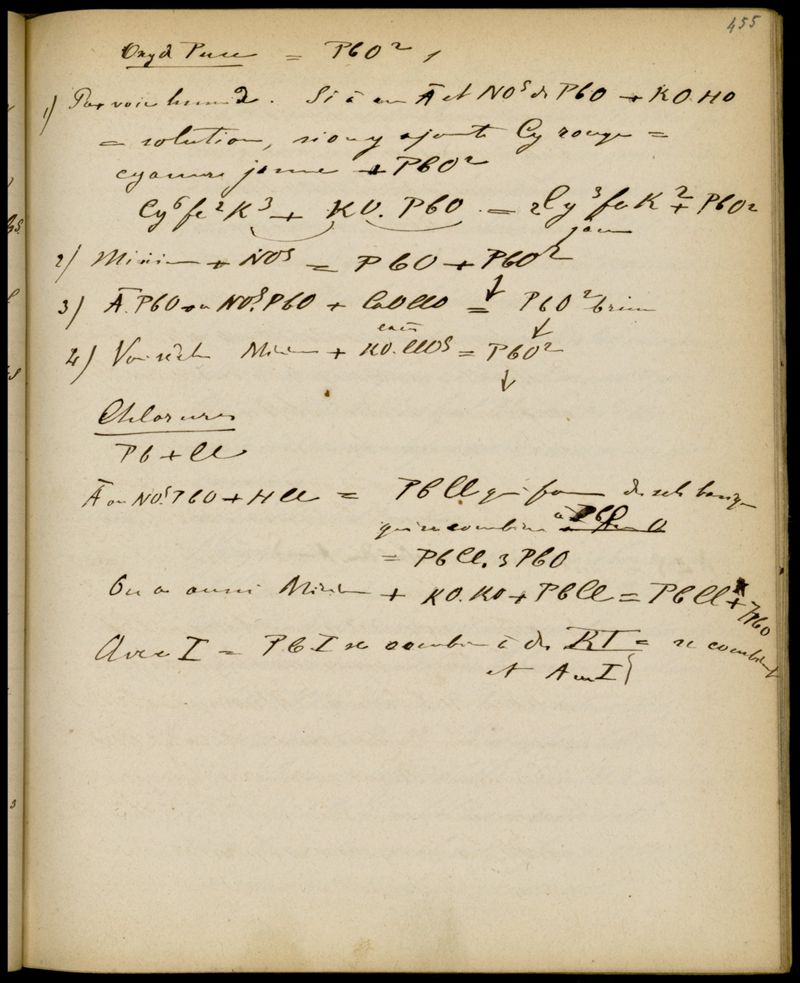 455
Oxyd Puce = PbO2,
1) Par voie humid. Si à un Ā et NO5 de PbO + KO.HO
= solution, si on y ajoute Cy rouge =
cyanure jaune + PbO2
Cy6fe2K3 + KO. PbO = 2Cy3feK2 + PbO2
jaune
2) Minium + NO5 = PbO + PbO2
3) Ā.PbO ou NO5.PbO + CaOClO = PbO2 brun
4) Voie sèche Minium + KO.ClO5 = PbO2
Chlorures
Pb + Cl
Ā ou NO5.PbO + HCl = PbCl qui forme des sels basiques
qui se combine à PbO
= PbCl. 3PbO
On a aussi Minium + KO.HO + PbCl = PbCl + 7PbO
Avec I = PbI se combine à des KI = se combine
et AmI